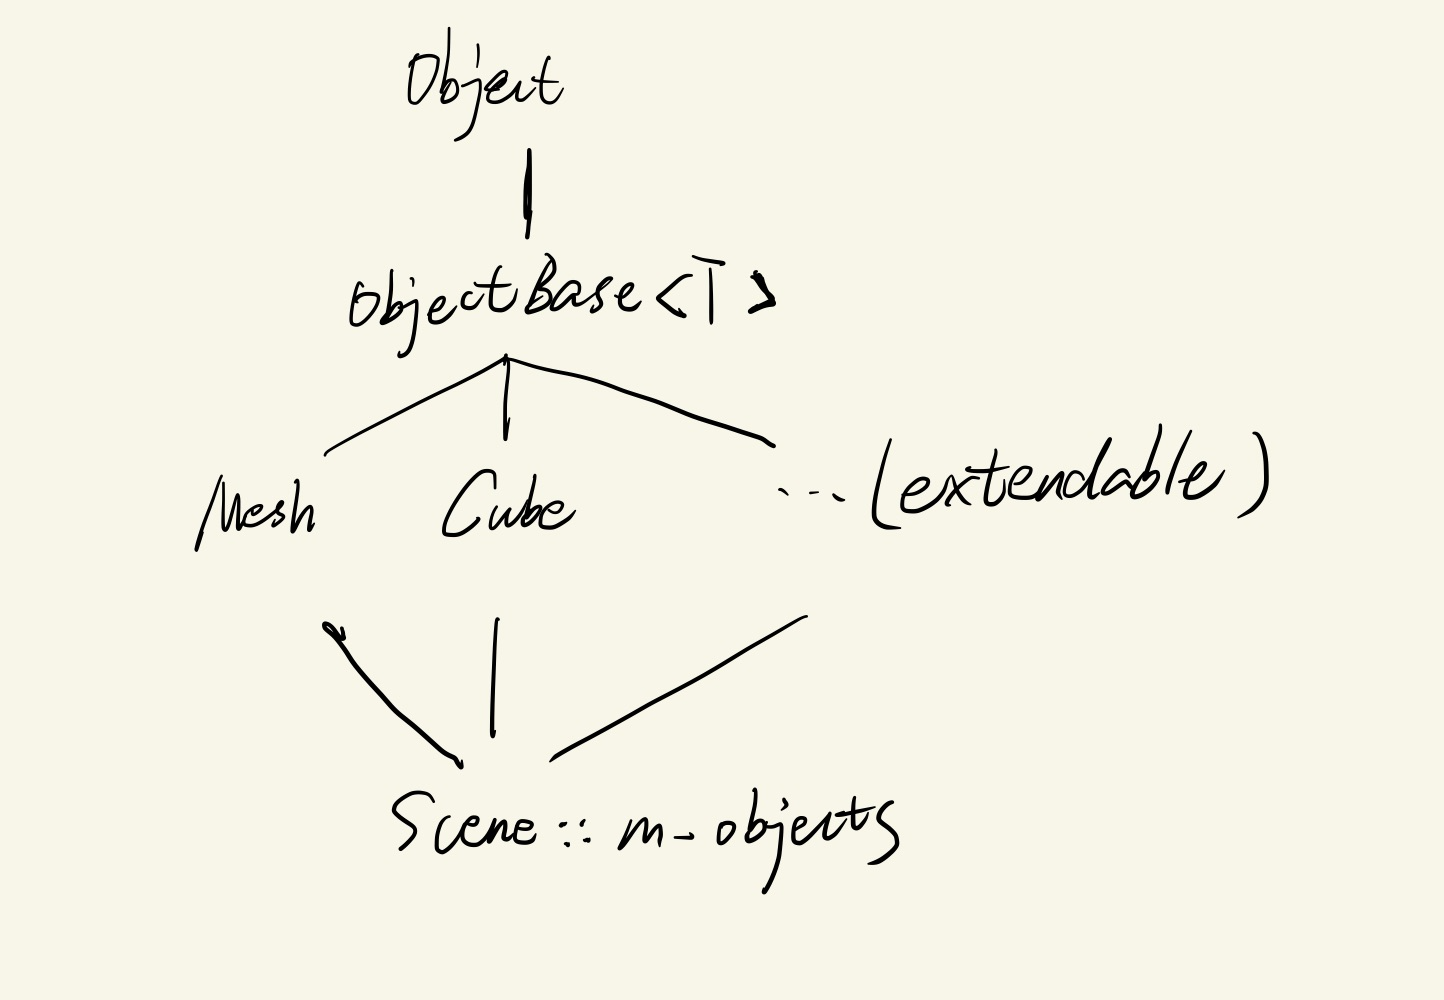 Object
ObjectBase<T>
Mesh Cube ... (extendable)
Scene::m_objects